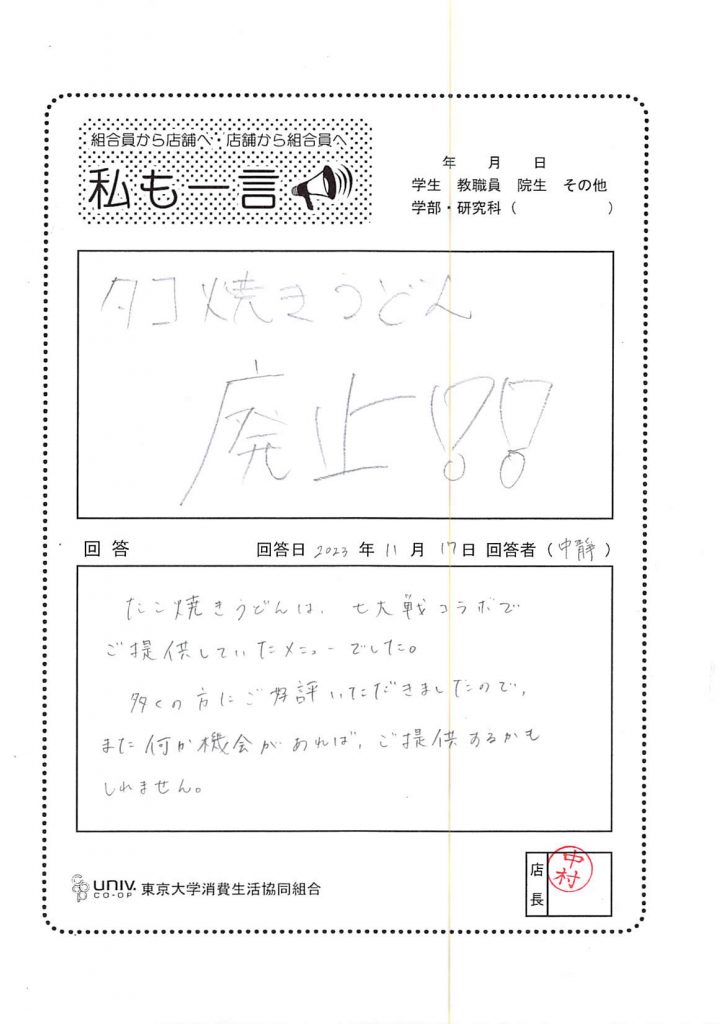 組合員から店舗へ・店舗から組合員へ
私も一言
年 月 日
学生 教職員 院生 その他
学部・研究科( )
タコ焼きうどん
廃止!!
回答 回答日 2023 年 11 月 17 日 回答者(中静)
たこ焼きうどんは、七大戦コラボで
ご提供していたメニューでした。
多くの方にご好評いただきましたので、
また何か機会があれば、ご提供するかも
しれません。
coop UNIV. CO-OP 東京大学消費生活協同組合
店長
中村